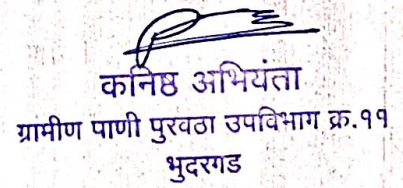 कनिष्ठ अभियंता
ग्रामीण पाणी पुरवठा उपविभाग क्र.११
भुदरगड